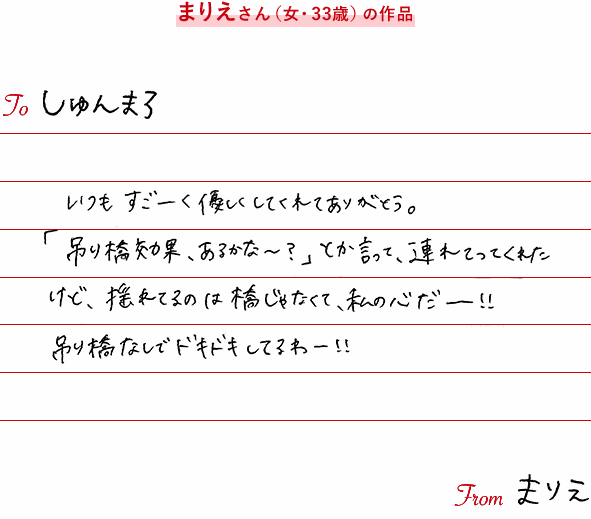 まりえさん（女・33歳）の作品
To しゅんまろ
いつも すごーく優しくしてくれてありがとう。
「吊り橋効果、あるかな〜？」とか言って、連れてってくれた
けど、揺れてるのは橋じゃなくて、私の心だー!!
吊り橋なしでドキドキしてるわー!!
From まりえ